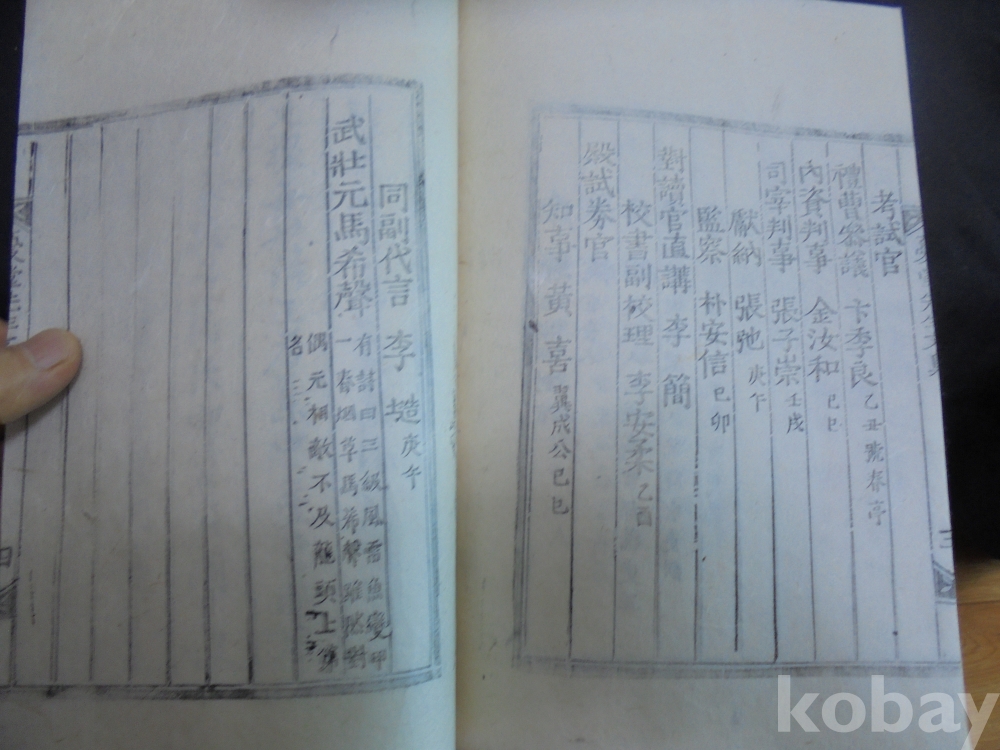 考試官
禮曹參議 卞季良 乙丑號春亭
內資判事 金汝和 己巳
司宰判事 張子崇 壬戌
獻納 張弛 庚午
監察 朴安信 己卯
對讀官直講 李簡
校書副校理 李安柔 乙酉
殿試券官
知事 黃喜 翼成公己巳
同副代言 李㙉 庚午
武壯元馬希聲 有詩曰三級風雷魚變甲
一春烟草馬希聲雖然對
偶元相敵不及龍頭上第
名
三
四
kobay